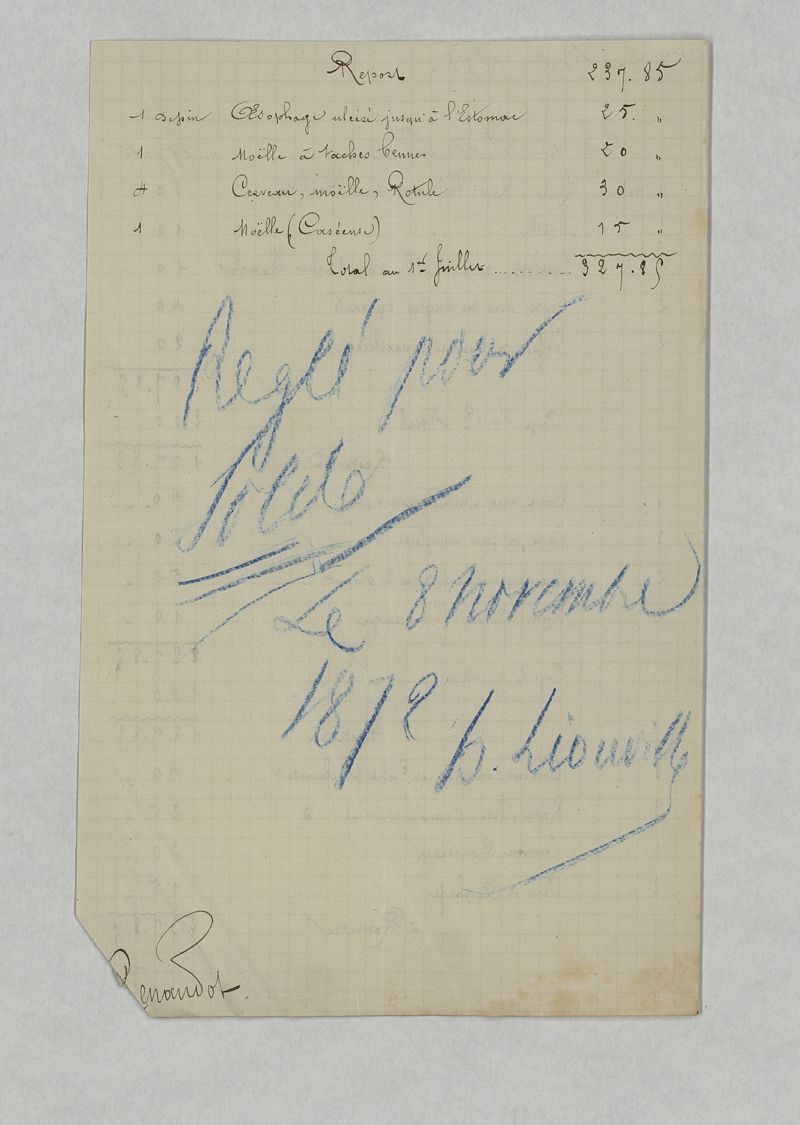 Report 237.85
1 Dessin Œsophage ulcéré jusqu'à l'Estomac 25. „
1 Moëlle à taches brunes 20 „
4 Cerveau, moëlle, Rotule 30 „
1 Moëlle (Caséeuse) 15 „
Total au 1er Juillet .......... 327.85
Reglé pour
Solde
Le 8 Novembre
1872 h. Liouville
Renaudot.